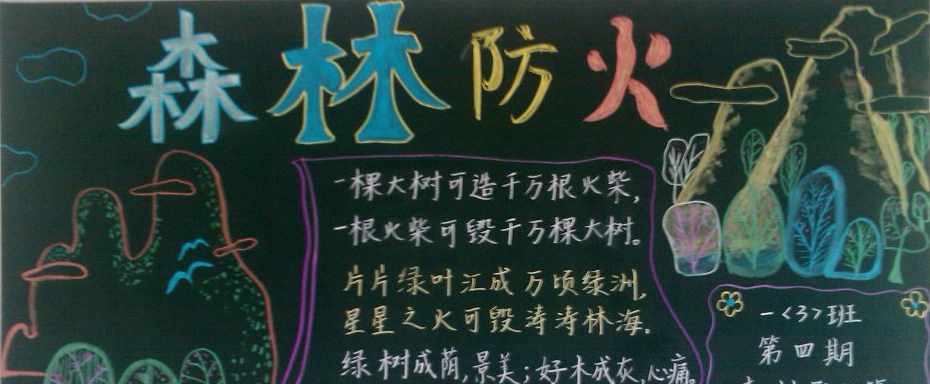 森林防火
一棵大树可造千万根火柴，
一根火柴可毁千万棵大树。
片片绿叶汇成万顷绿洲，
星星之火可毁涛涛林海.
绿树成荫，景美；好木成灰，心痛。
一<3>班
第四期